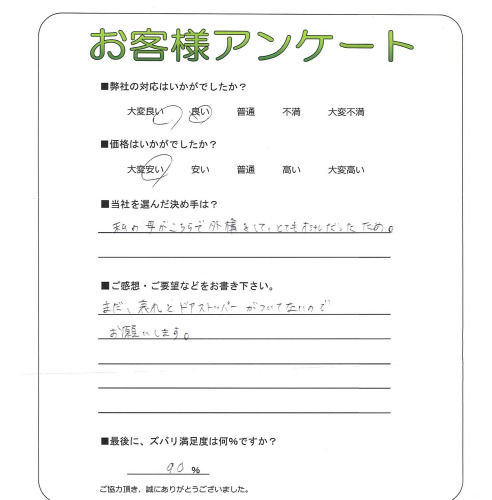 お客様アンケート
■弊社の対応はいかがでしたか？
大変良い 良い 普通 不満 大変不満
■価格はいかがでしたか？
大変安い 安い 普通 高い 大変高い
■当社を選んだ決め手は？
私の母がこちらで外構をして、とても だした ため。
■ご感想・ご要望などをお書き下さい。
まだ、表札とドアストッパーがついてないので
お願いします。
■最後に、ズバリ満足度は何%ですか？
90 %
ご協力頂き、誠にありがとうございました。